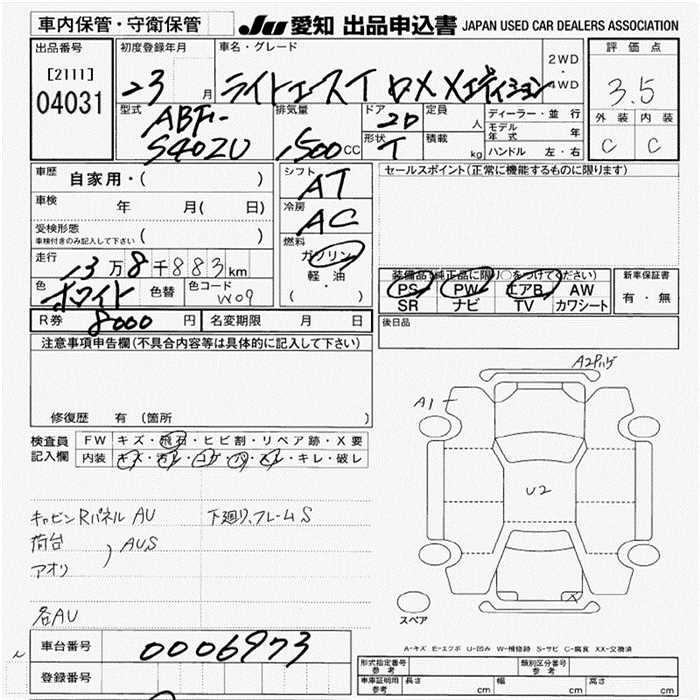 車内保管・守衛保管
JU 愛知 出品申込書 JAPAN USED CAR DEALERS ASSOCIATION
出品番号
[2111]
04031
初度登録年月
23 月
車名・グレード
ライトエースT DX Xエディション
2WD
・
4WD
評価点
3.5
外装 内装
C C
型式
ABF-
S402U
排気量
1500CC
ドア
2D
形状
T
定員
人
積載
kg
ディーラー・並行
モデル年式 年
ハンドル 左・右
車歴
自家用・( )
車検
年 月( 日)
受検形態
車検付きのみ記入して下さい ( )
走行
13万8千883km
色
ホワイト
色替
色コード
W09
シフト
AT
冷房
AC
燃料
ガソリン
軽・油
( )
セールスポイント(正常に機能するものに限ります)
装備品(純正品に限り○をつけてください)
PS PW エアB AW
SR ナビ TV カワシート
新車保証書
有・無
R券 8000 円 名変期限 月 日
後日品
注意事項申告欄(不具合内容等は具体的に記入して下さい)
修復歴 有(箇所 )
検査員
記入欄
FW キズ・飛石・ヒビ割・リペア跡・X要
内装 キズ・汚レ・コゲ・・・キレ・破レ
キャビンRパネル AU 下廻り、フレームS
荷台
アオリ
) AUS
各AU
A2ハゲ
A1
U2
X
スペア
A-キズ E-エクボ U-凹み W-補修跡 S-サビ C-腐食 XX-交換済
車台番号 0006973
登録番号
型式指定番号
参考
類別区分番号
参考
車庫証明用
参考
長さ cm 幅 cm 高さ cm